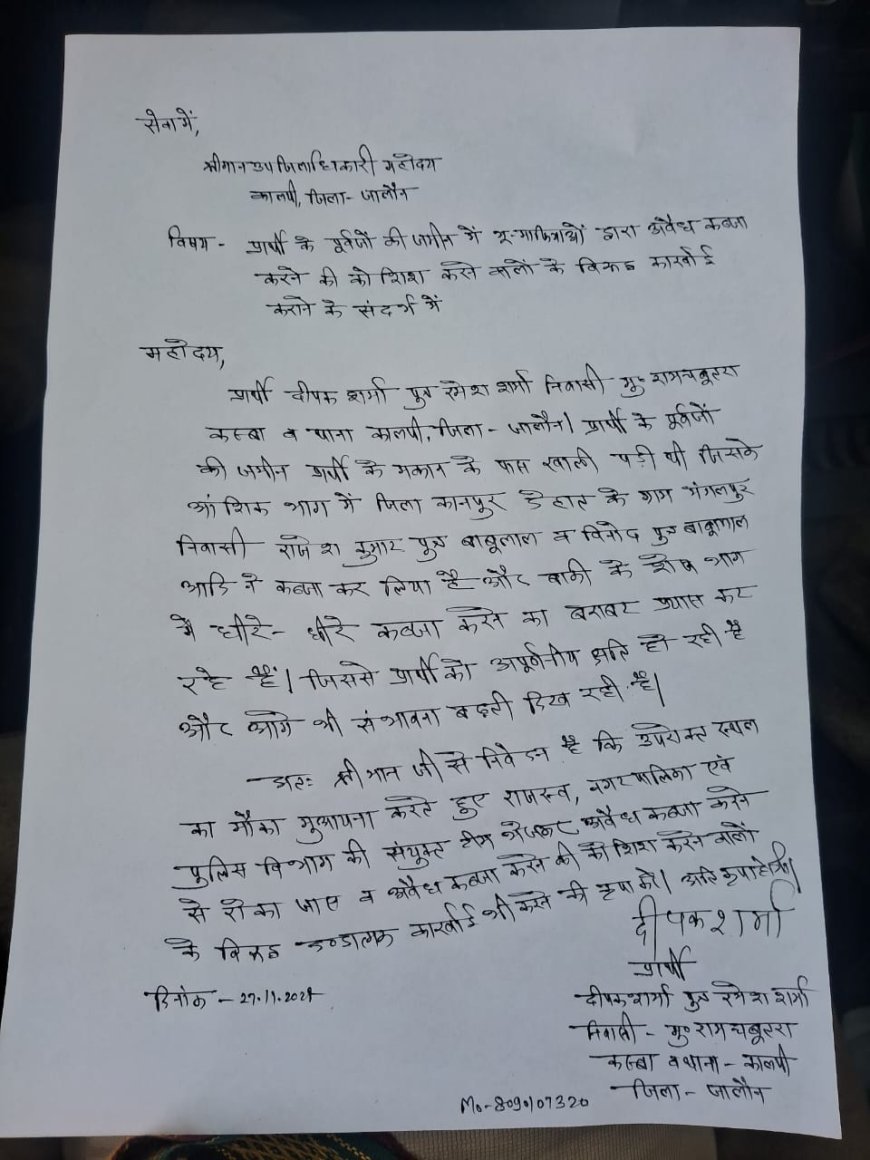 सेवा में,
श्रीमान उपजिलाधिकारी महोदय
कालपी, जिला - जालौन
विषय - प्रार्थी के पूर्वजों की जमीन में भू-माफियाओं द्वारा अवैध कब्जा
करने की कोशिश करने वालों के विरुद्ध कार्यवाई
कराने के संदर्भ में
महोदय,
प्रार्थी दीपक शर्मा पुत्र रमेश शर्मा निवासी मु० रामचबूतरा
कस्बा व थाना कालपी, जिला - जालौन। प्रार्थी के पूर्वजों
की जमीन प्रार्थी के मकान के पास खाली पड़ी थी जिसके
आंशिक भाग में जिला कानपुर देहात के ग्राम मंगलपुर
निवासी राजेश कुमार पुत्र बाबूलाल व विनोद पुत्र बाबूलाल
आदि ने कब्जा कर लिया है और बाकी के शेष भाग
में धीरे - धीरे कब्जा करने का बराबर प्रयास कर
रहे हैं। जिससे प्रार्थी को अपूर्णनीय क्षति हो रही है
और आगे भी संभावना बढ़ती दिख रही है।
अतः श्रीमान जी से निवेदन है कि उपरोक्त स्थल
का मौका मुआयना करते हुए राजस्व, नगर पालिका एवं
पुलिस विभाग की संयुक्त टीम भेजकर अवैध कब्जा करने
से रोका जाए व अवैध कब्जा करने की कोशिश करने वालों
के विरुद्ध दण्डात्मक कार्यवाई भी करने की कृपा करें। अति कृपा होगी।
दीपक शर्मा
प्रार्थी
दिनांक - 27.11.2024
दीपक शर्मा पुत्र रमेश शर्मा
निवासी - मु० रामचबूतरा
कस्बा व थाना - कालपी
जिला - जालौन
Mo-8090107320